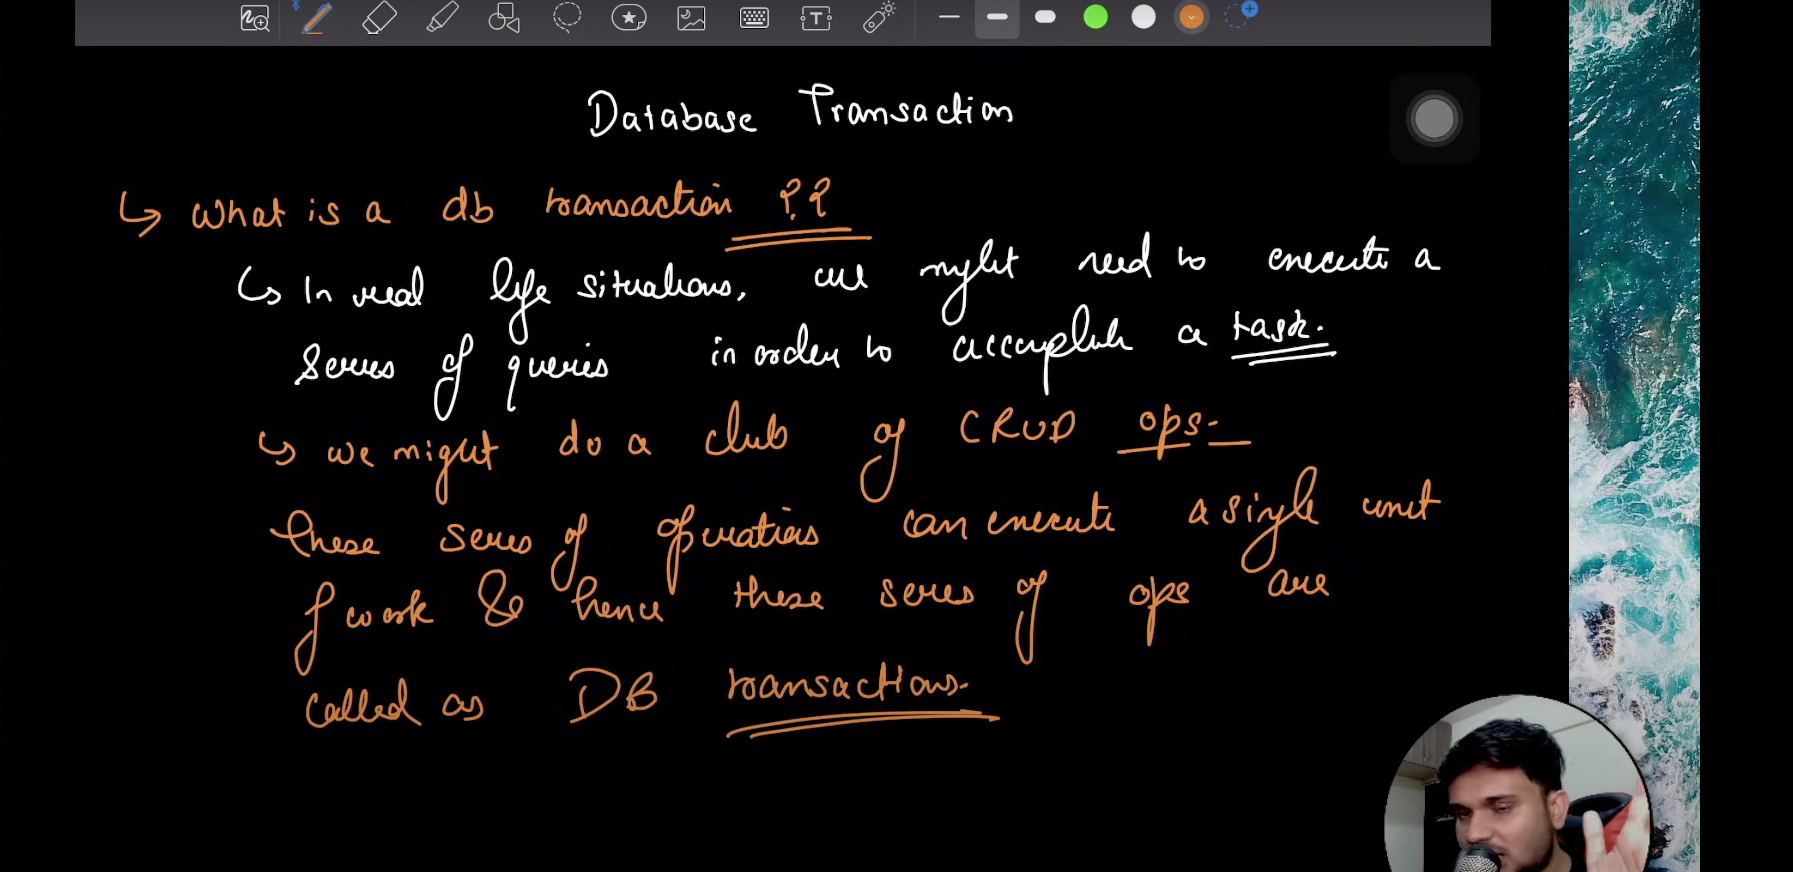 Database Transaction
↳ What is a db transaction ??
↳ In real life situations, we might need to execute a
series of queries in order to accomplish a task.
↳ we might do a club of CRUD ops.
these series of operations can execute a single unit
of work & hence these series of ops are
called as DB transactions.